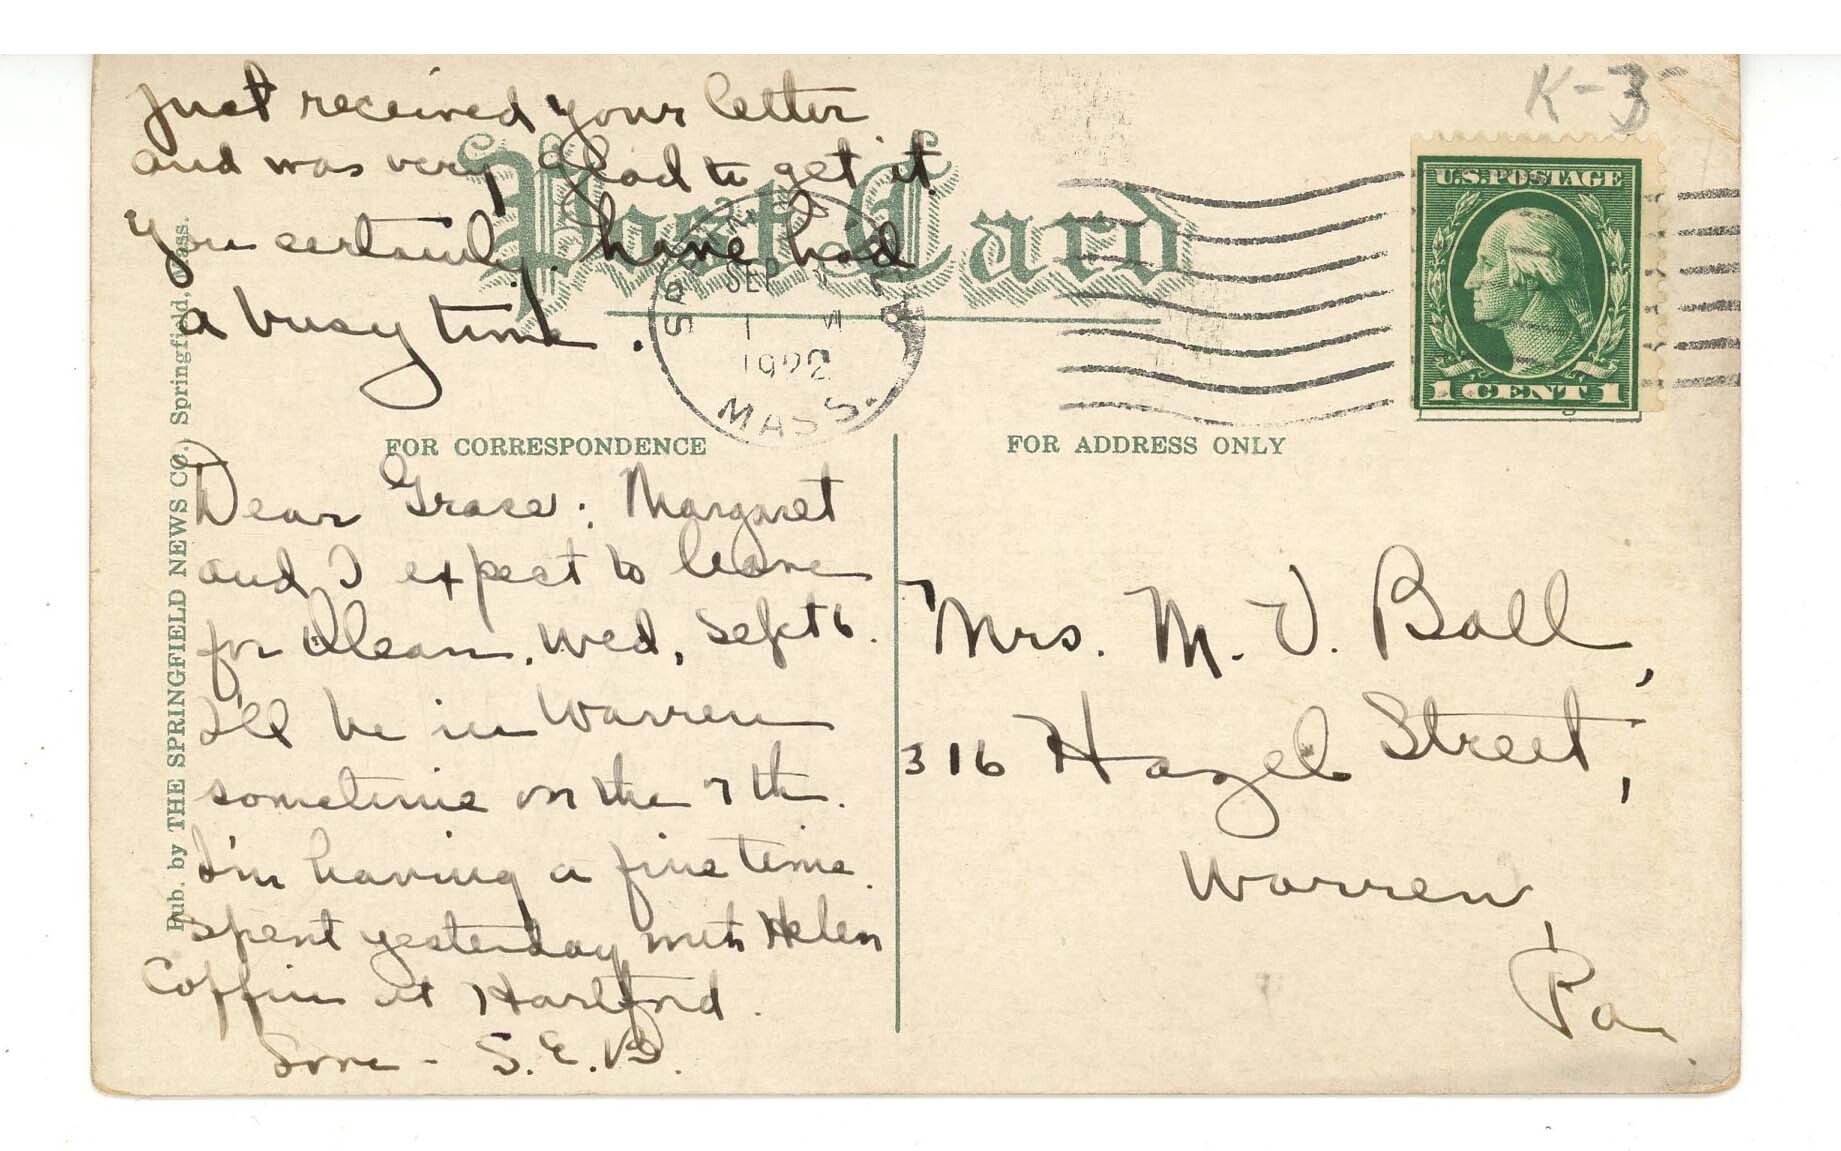 Just received your letter
and was very glad to get it
You certainly have had
a busy time.
K-3
Post Card
U.S. POSTAGE
1 CENT 1
SEP
1
1922
MASS.
FOR CORRESPONDENCE
FOR ADDRESS ONLY
Dear Grace: Margaret
and I expect to leave
for Olean, Wed, Sept 6.
I'll be in Warren
sometime on the 7th.
I'm having a fine time.
Spent yesterday with Helen
Coffin at Hartford.
Love - S. E. B.
Mrs. M. V. Ball,
316 Hazel Street,
Warren,
Pa.
Pub. by THE SPRINGFIELD NEWS CO., Springfield, Mass.